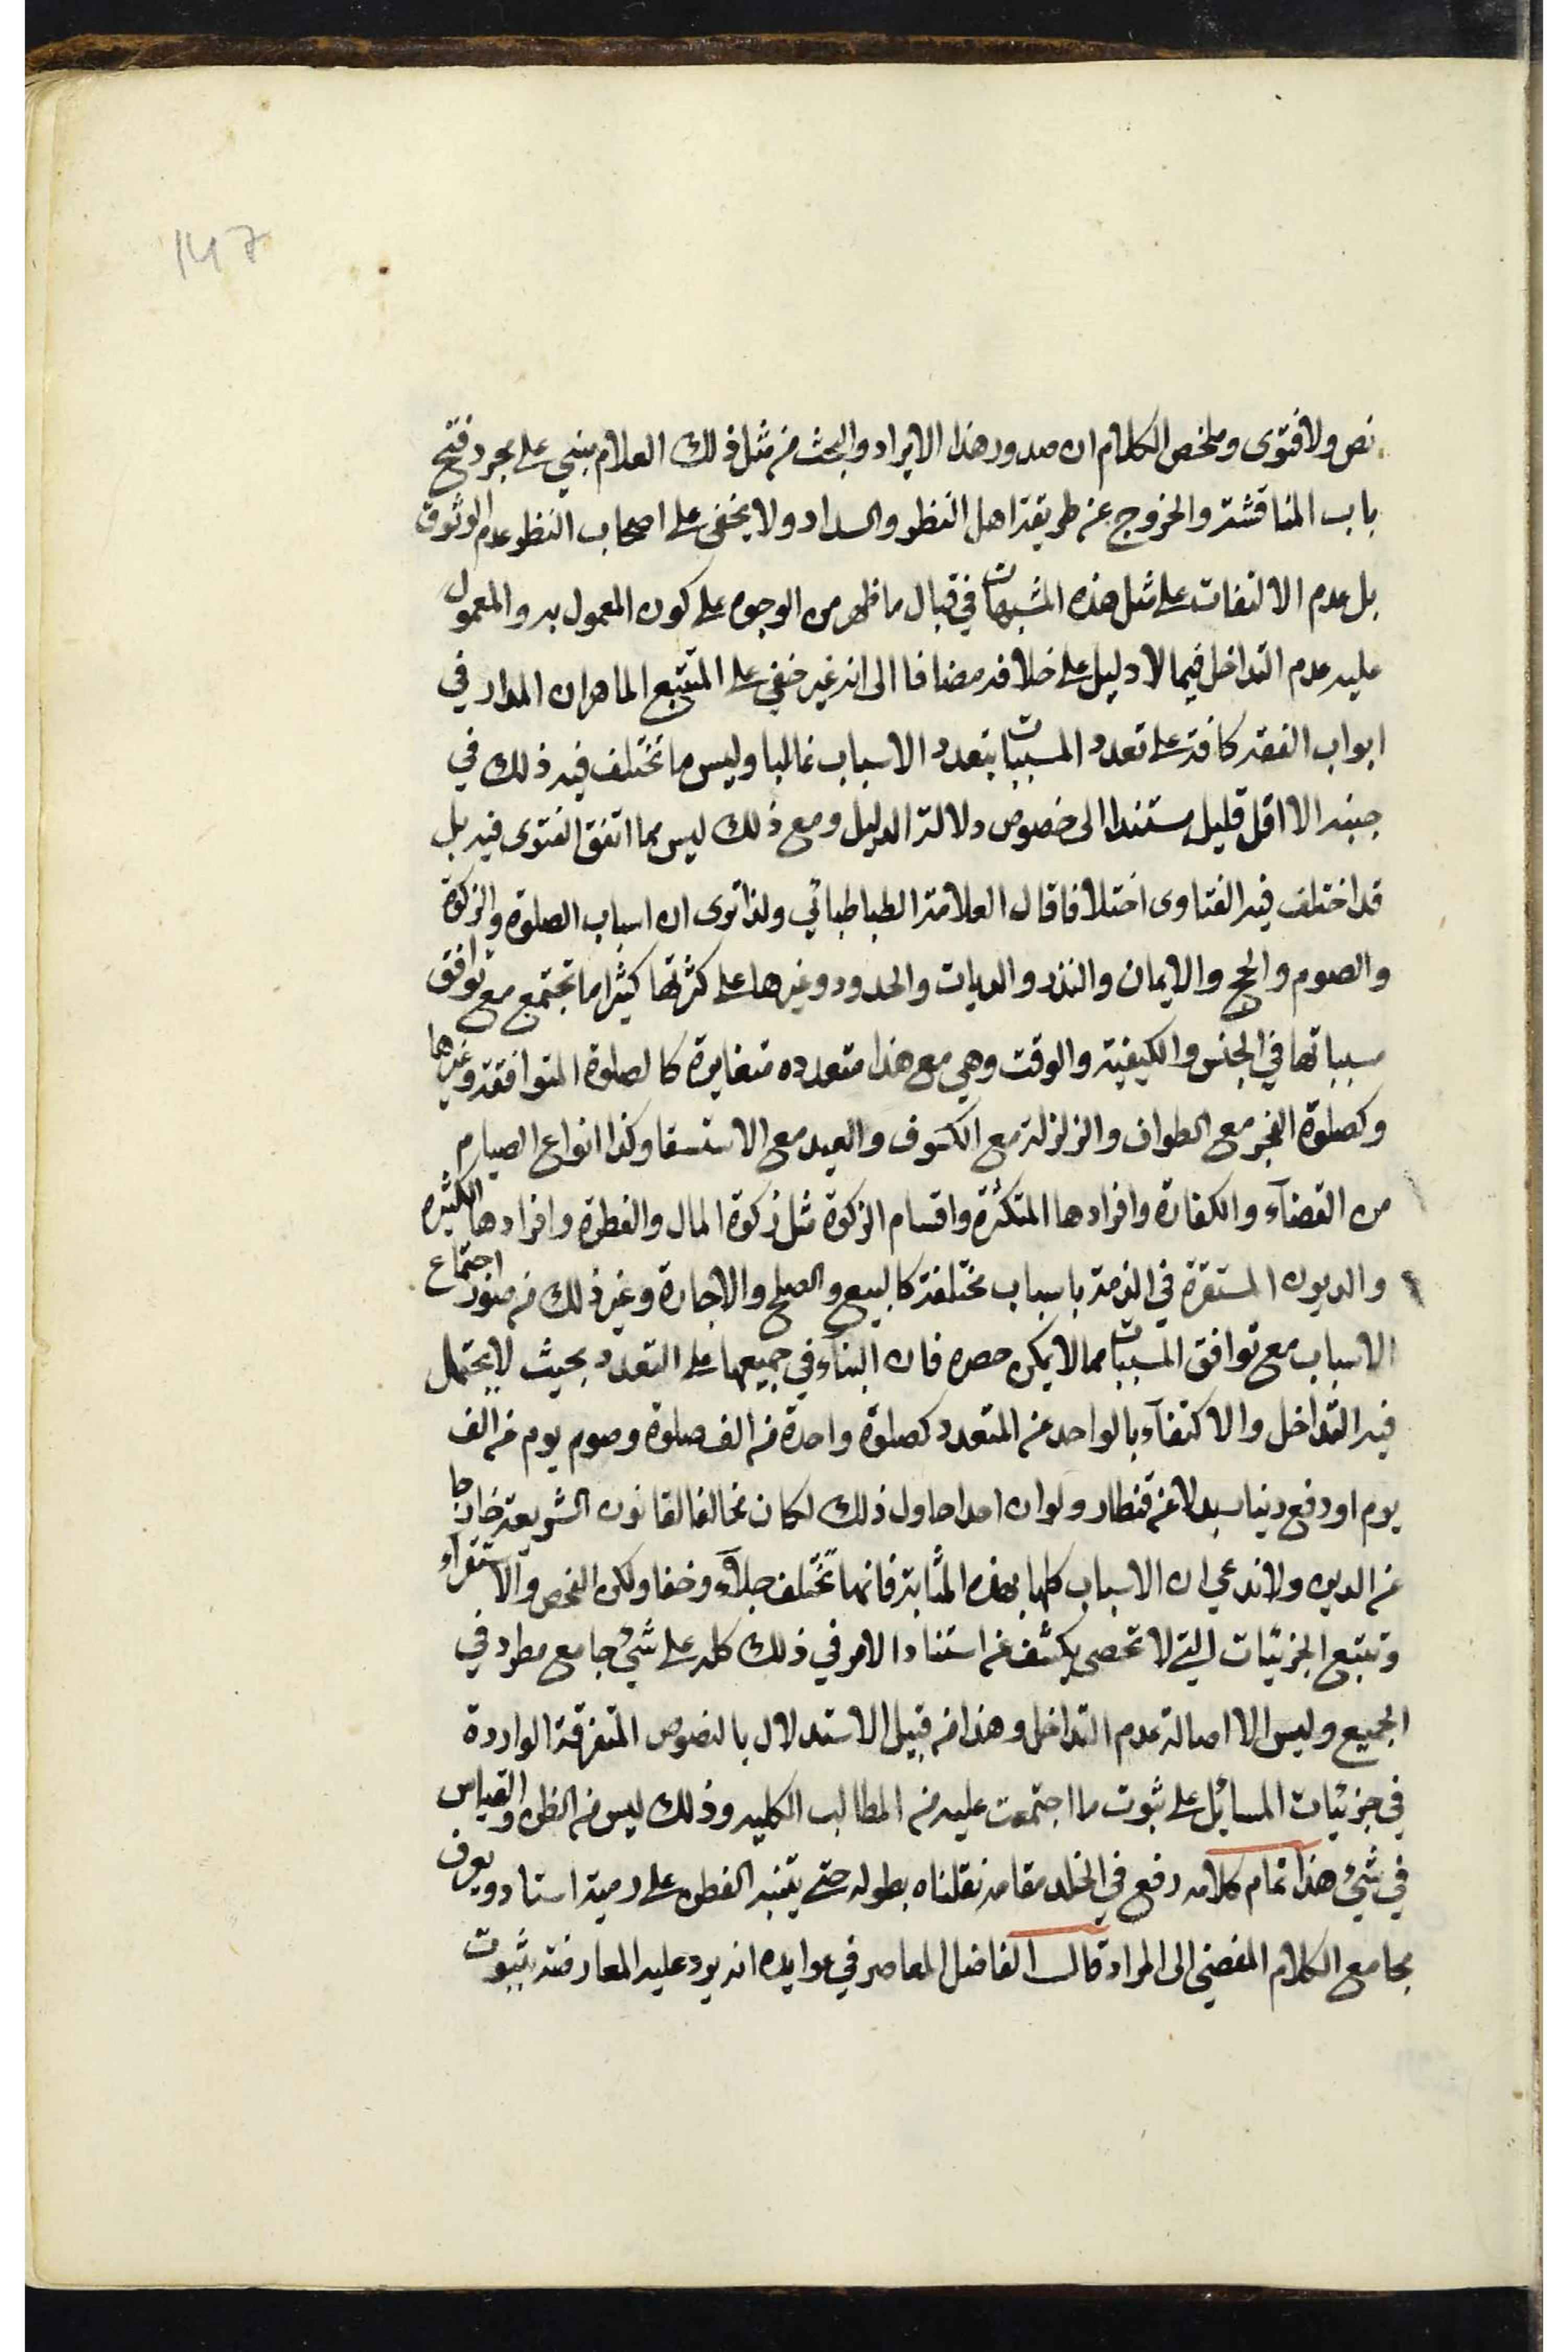 147
نص ولا فتوى وملخص الكلام ان صدور هذا الايراد والبحث من مثل ذلك العلام مبني على مجرد فتح
باب المناقشة والخروج عن طريقة اهل النظر والسداد ولا يخفى على اصحاب النظر عدم الوثوق
بل عدم الالتفات على مثل هذه المشبهات في قبال ما ظهر من الوجوه على كون المعمول به والمعمول
عليه عدم التداخل فيما لا دليل على خلافه مضافا الى انه غير خفي على المتتبع الماهر ان المدار في
ابواب الفقه كافة على تعدد المسببات بتعدد الاسباب غالبا وليس ما تختلف فيه ذلك في
جنبه الا اقل قليل مستندا الى خصوص دلالة الدليل ومع ذلك ليس مما اتفق الفتوى فيه بل
قد اختلف فيه الفتاوى اختلافا قال العلامة الطباطبائي ولذا ترى ان اسباب الصلوة والزكوة
والصوم والحج والايمان والنذر والديات والحدود وغيرها على كثرتها كثيرا ما تجتمع مع توافق
مسبباتها في الجنس والكيفية والوقت وهي مع هذا متعدده متغايرة كالصلوة المتوافقة وغيرها
وكصلوة الفجر مع الطواف والزلزلة مع الكسوف والعيد مع الاستسقا وكذا انواع الصيام
من القضآء والكفارة وافرادها المتكثرة واقسام الزكوة مثل زكوة المال والفطرة وافرادها الكثيره
والديون المستقرة في الذمة باسباب مختلفة كالبيع والصلح والاجارة وغير ذلك من صور اجتماع
الاسباب مع توافق المسببات مما لا يمكن حصره فان البنآء في جميعها على التعدد بحيث لا يحتمل
فيه التداخل والاكتفآء بالواحد عن المتعدد كصلوة واحدة من الف صلوة وصوم يوم عن الف
يوم او دفع دينار بدلا عن قنطار ولو ان احدا حاول ذلك لكان مخالفا لقانون الشريعة خارجا
عن الدين ولا ندعي ان الاسباب كلها بهذه المثابة فانها تختلف جلآء وخفا ولكن الفحص والاستقرآء
وتتبع الجزئيات التي لا تحصى يكشف عن استناد الامر في ذلك كله على شئ جامع مطرد في
الجميع وليس الا اصالة عدم التداخل وهذا من قبيل الاستدلال بالنصوص المتفرقة الواردة
في جزئيات المسائل على ثبوت ما اجتمعت عليه من المطالب الكليه وذلك ليس من الظن والقياس
في شئ هذا تمام كلامه رفع في الخلد مقامه نقلناه بطوله حتى يتنبه الفطن على رمية استاد ويعرف
مجامع الكلام المفضي الى المراد قال الفاضل المعاصر في عوايده انه يرد عليه المعارضة بثبوت